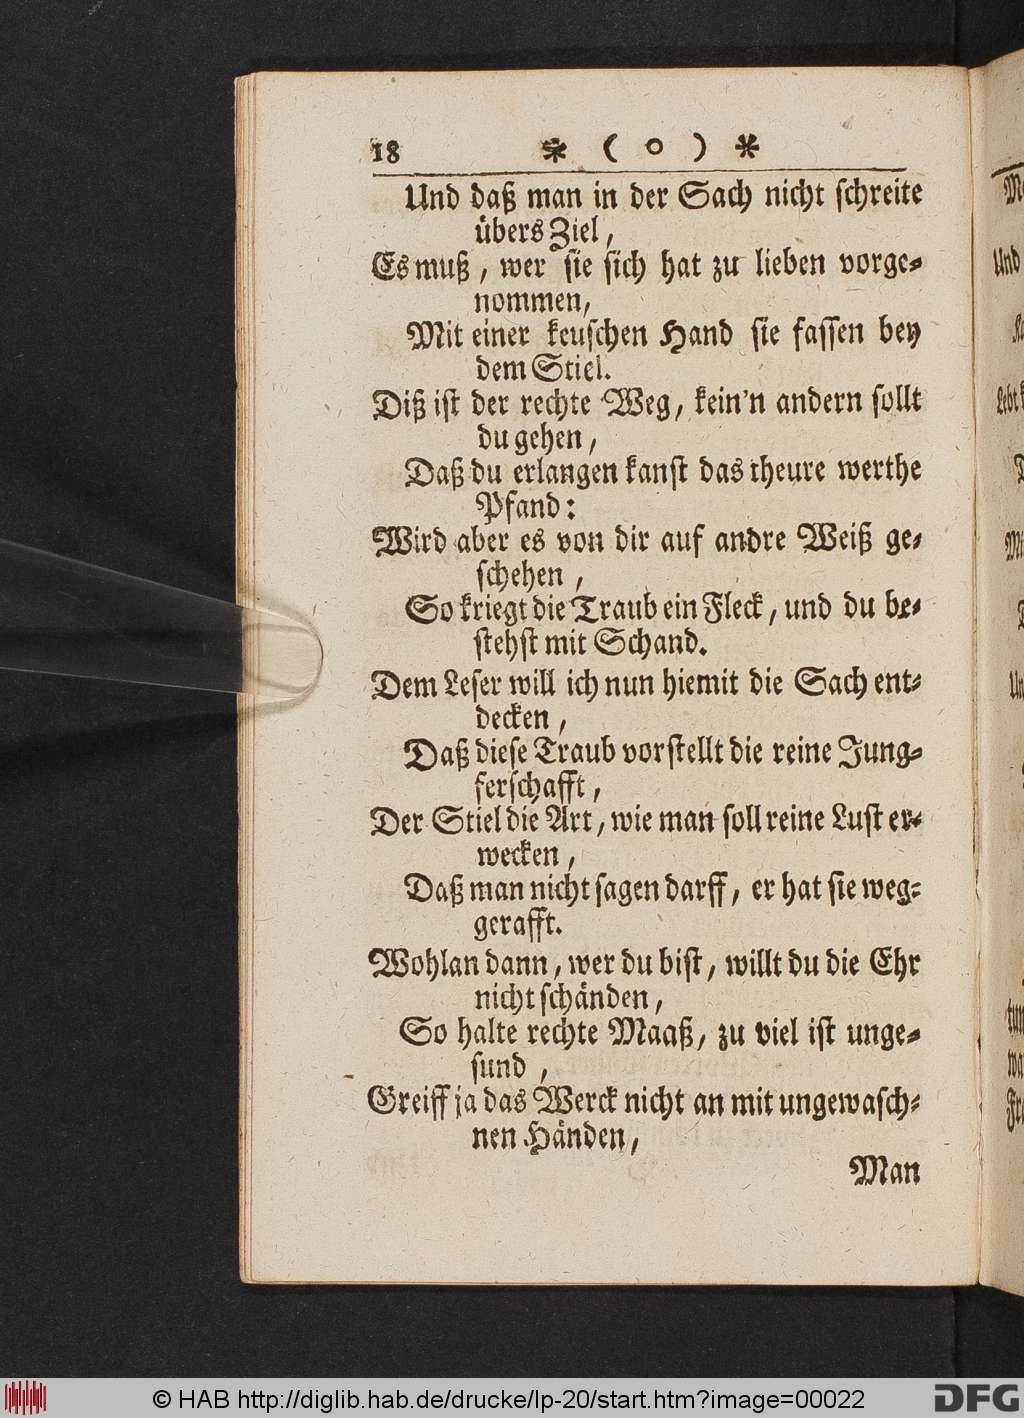 18 * ( o ) *
Und daß man in der Sach nicht schreite
übers Ziel,
Es muß, wer sie sich hat zu lieben vorge-
nommen,
Mit einer keuschen Hand sie fassen bey
dem Stiel.
Diß ist der rechte Weg, kein'n andern sollt
du gehen,
Daß du erlangen kanst das theure werthe
Pfand:
Wird aber es von dir auf andre Weiß ge-
schehen,
So kriegt die Traub ein Fleck, und du be-
stehst mit Schand.
Dem Leser will ich nun hiemit die Sach ent-
decken,
Daß diese Traub vorstellt die reine Jung-
ferschafft,
Der Stiel die Art, wie man soll reine Lust er-
wecken,
Daß man nicht sagen darff, er hat sie weg-
gerafft.
Wohlan dann, wer du bist, willt du die Ehr
nicht schänden,
So halte rechte Maaß, zu viel ist unge-
sund,
Greiff ja das Werck nicht an mit ungewasch-
nen Händen,
Man
© HAB http://diglib.hab.de/drucke/lp-20/start.htm?image=00022
DFG